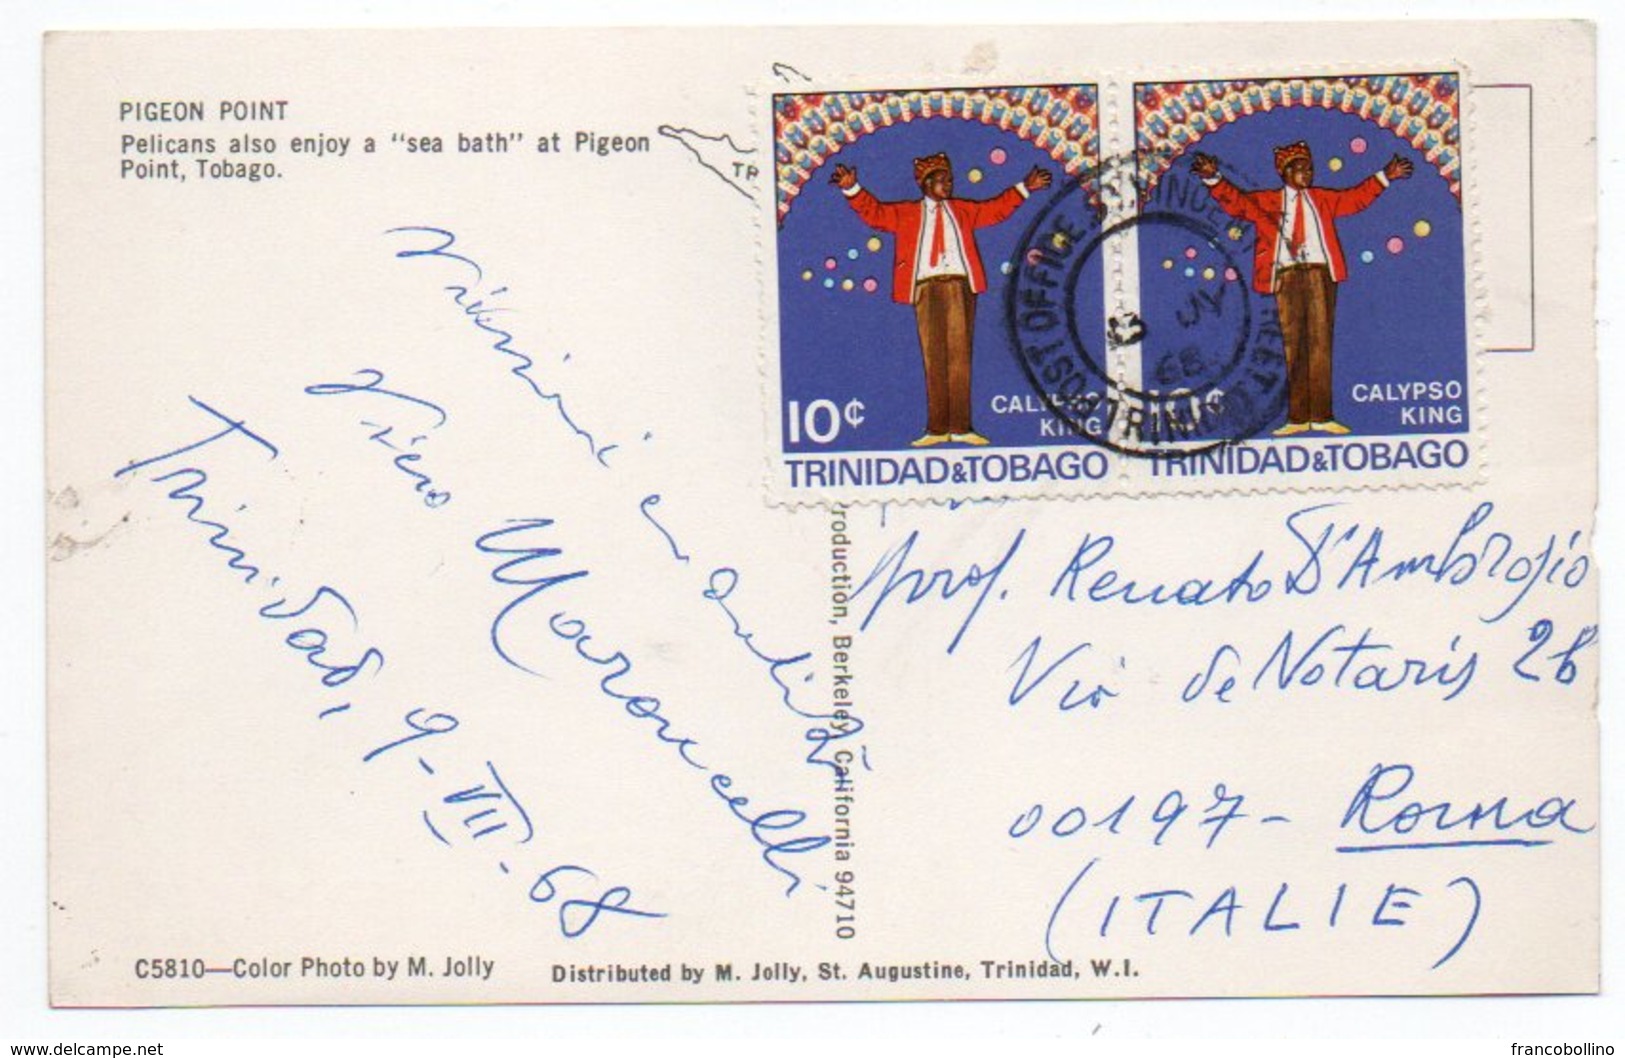 PIGEON POINT
Pelicans also enjoy a "sea bath" at Pigeon
Point, Tobago.
TR
10¢
CALYPSO
KING
TRINIDAD&TOBAGO
10¢
CALYPSO
KING
TRINIDAD&TOBAGO
POST OFFICE ST. VINCENT STREET TRINIDAD
JUL
68
cordialità
Piero Maroncelli
Trinidad, 9-VII-68
roduction, Berkeley, California 94710
prof. Renato D'Ambrosio
Via de Notaris 2b
00197 - Roma
(ITALIE)
C5810—Color Photo by M. Jolly
Distributed by M. Jolly, St. Augustine, Trinidad, W.I.
www.delcampe.net
francobollino